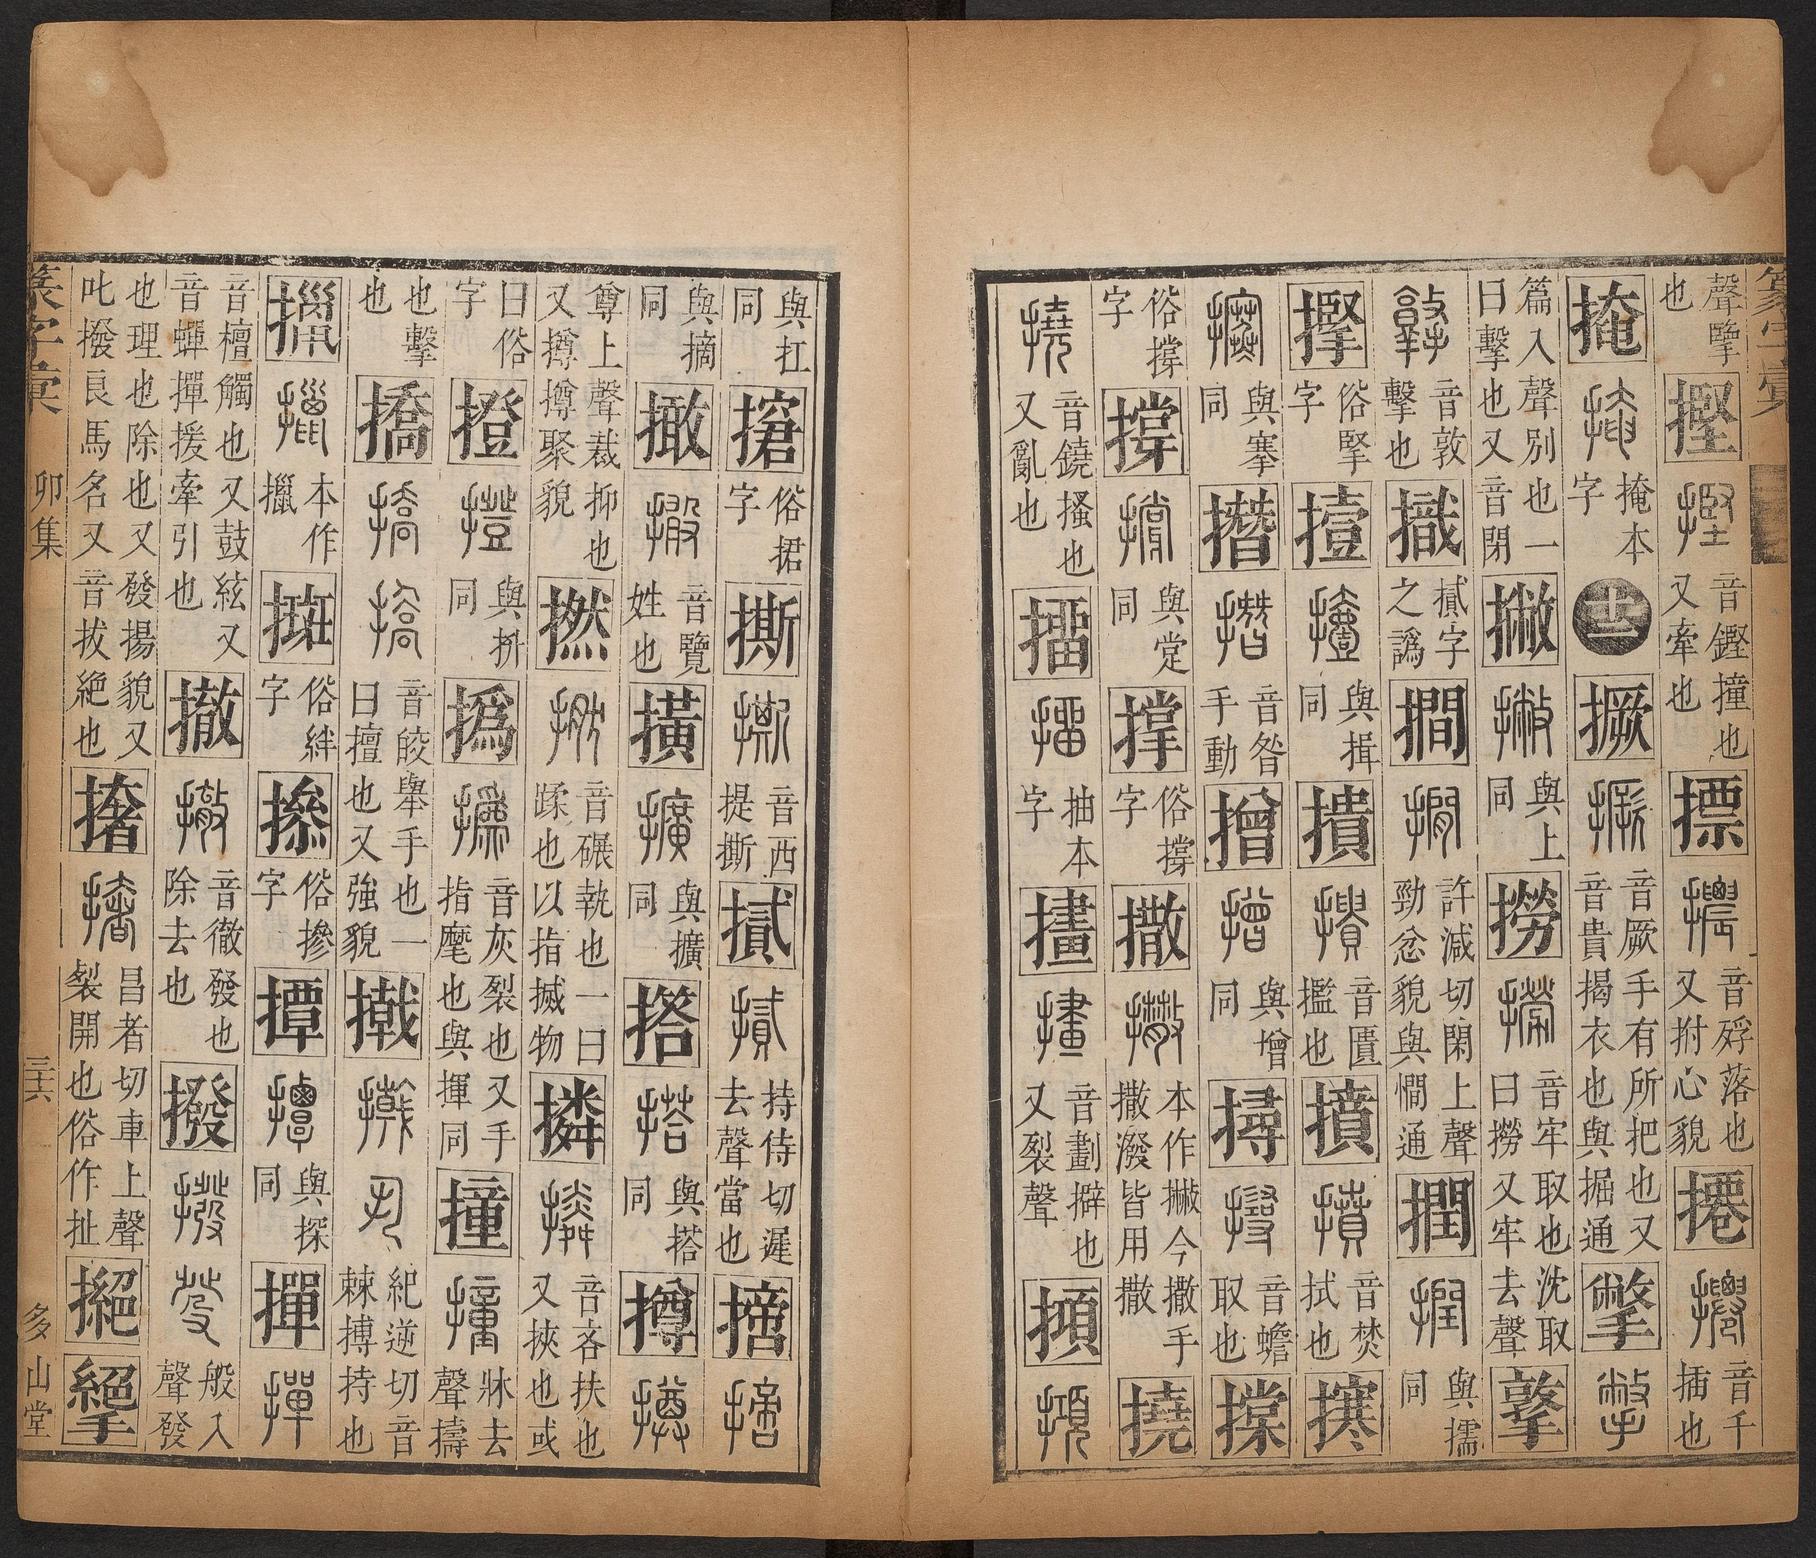 篆字彙
聲擥也 摼 音鏗撞也又牽也 摽 音殍落也又拊心貌 音千插也
掩 掩本字 十二 撅 音厥手有所把也又音貴揭衣也與掘通 撆
篇入聲別也一曰擊也又音閉 撇 與上同 撈 音牢取也沈取曰撈又牢去聲 撉
音敦擊也 貳字之譌 撊 許減切閑上聲勁忿貌與憪通 撋 與擩同
俗掔字 撎 與揖同 撌 音匱㩜也 音焚拭也
與搴同 撍 音昝手動 與增同 撏 音蟾取也
俗撐字 撐 與定同 撑 俗撐字 撒 本作㩎今撒手撒潑皆用撒 撓
音鐃搔也又亂也 抽本字 音劃擗也又裂聲
與扛同 俗捃字 撕 音西提撕 持侍切遲去聲當也
與摘同 撖 音覽姓也 撗 與擴同 撘 與搭同 撙
尊上聲裁抑也又撙撙聚貌 撚 音碾執也一曰蹂也以指搣物 撛 音吝扶也又挾也或
曰俗字 撜 與拼同 撝 音灰裂也又手指麾也與揮同 撞 牀去聲擣
也擊也 撟 音皎舉手也一曰擅也又強貌 撠 紀逆切音棘搏持也
本作擸 俗絆字 俗摻字 撢 與探同 撣
音檀觸也又鼓絃又音蟬撣援牽引也 撤 音徹發也除去也 撥 般入聲發
也理也除也又發揚貌又叱撥良馬名又音拔絕也 撦 昌者切車上聲裂開也俗作扯
篆字彙 卯集 三六 多山堂